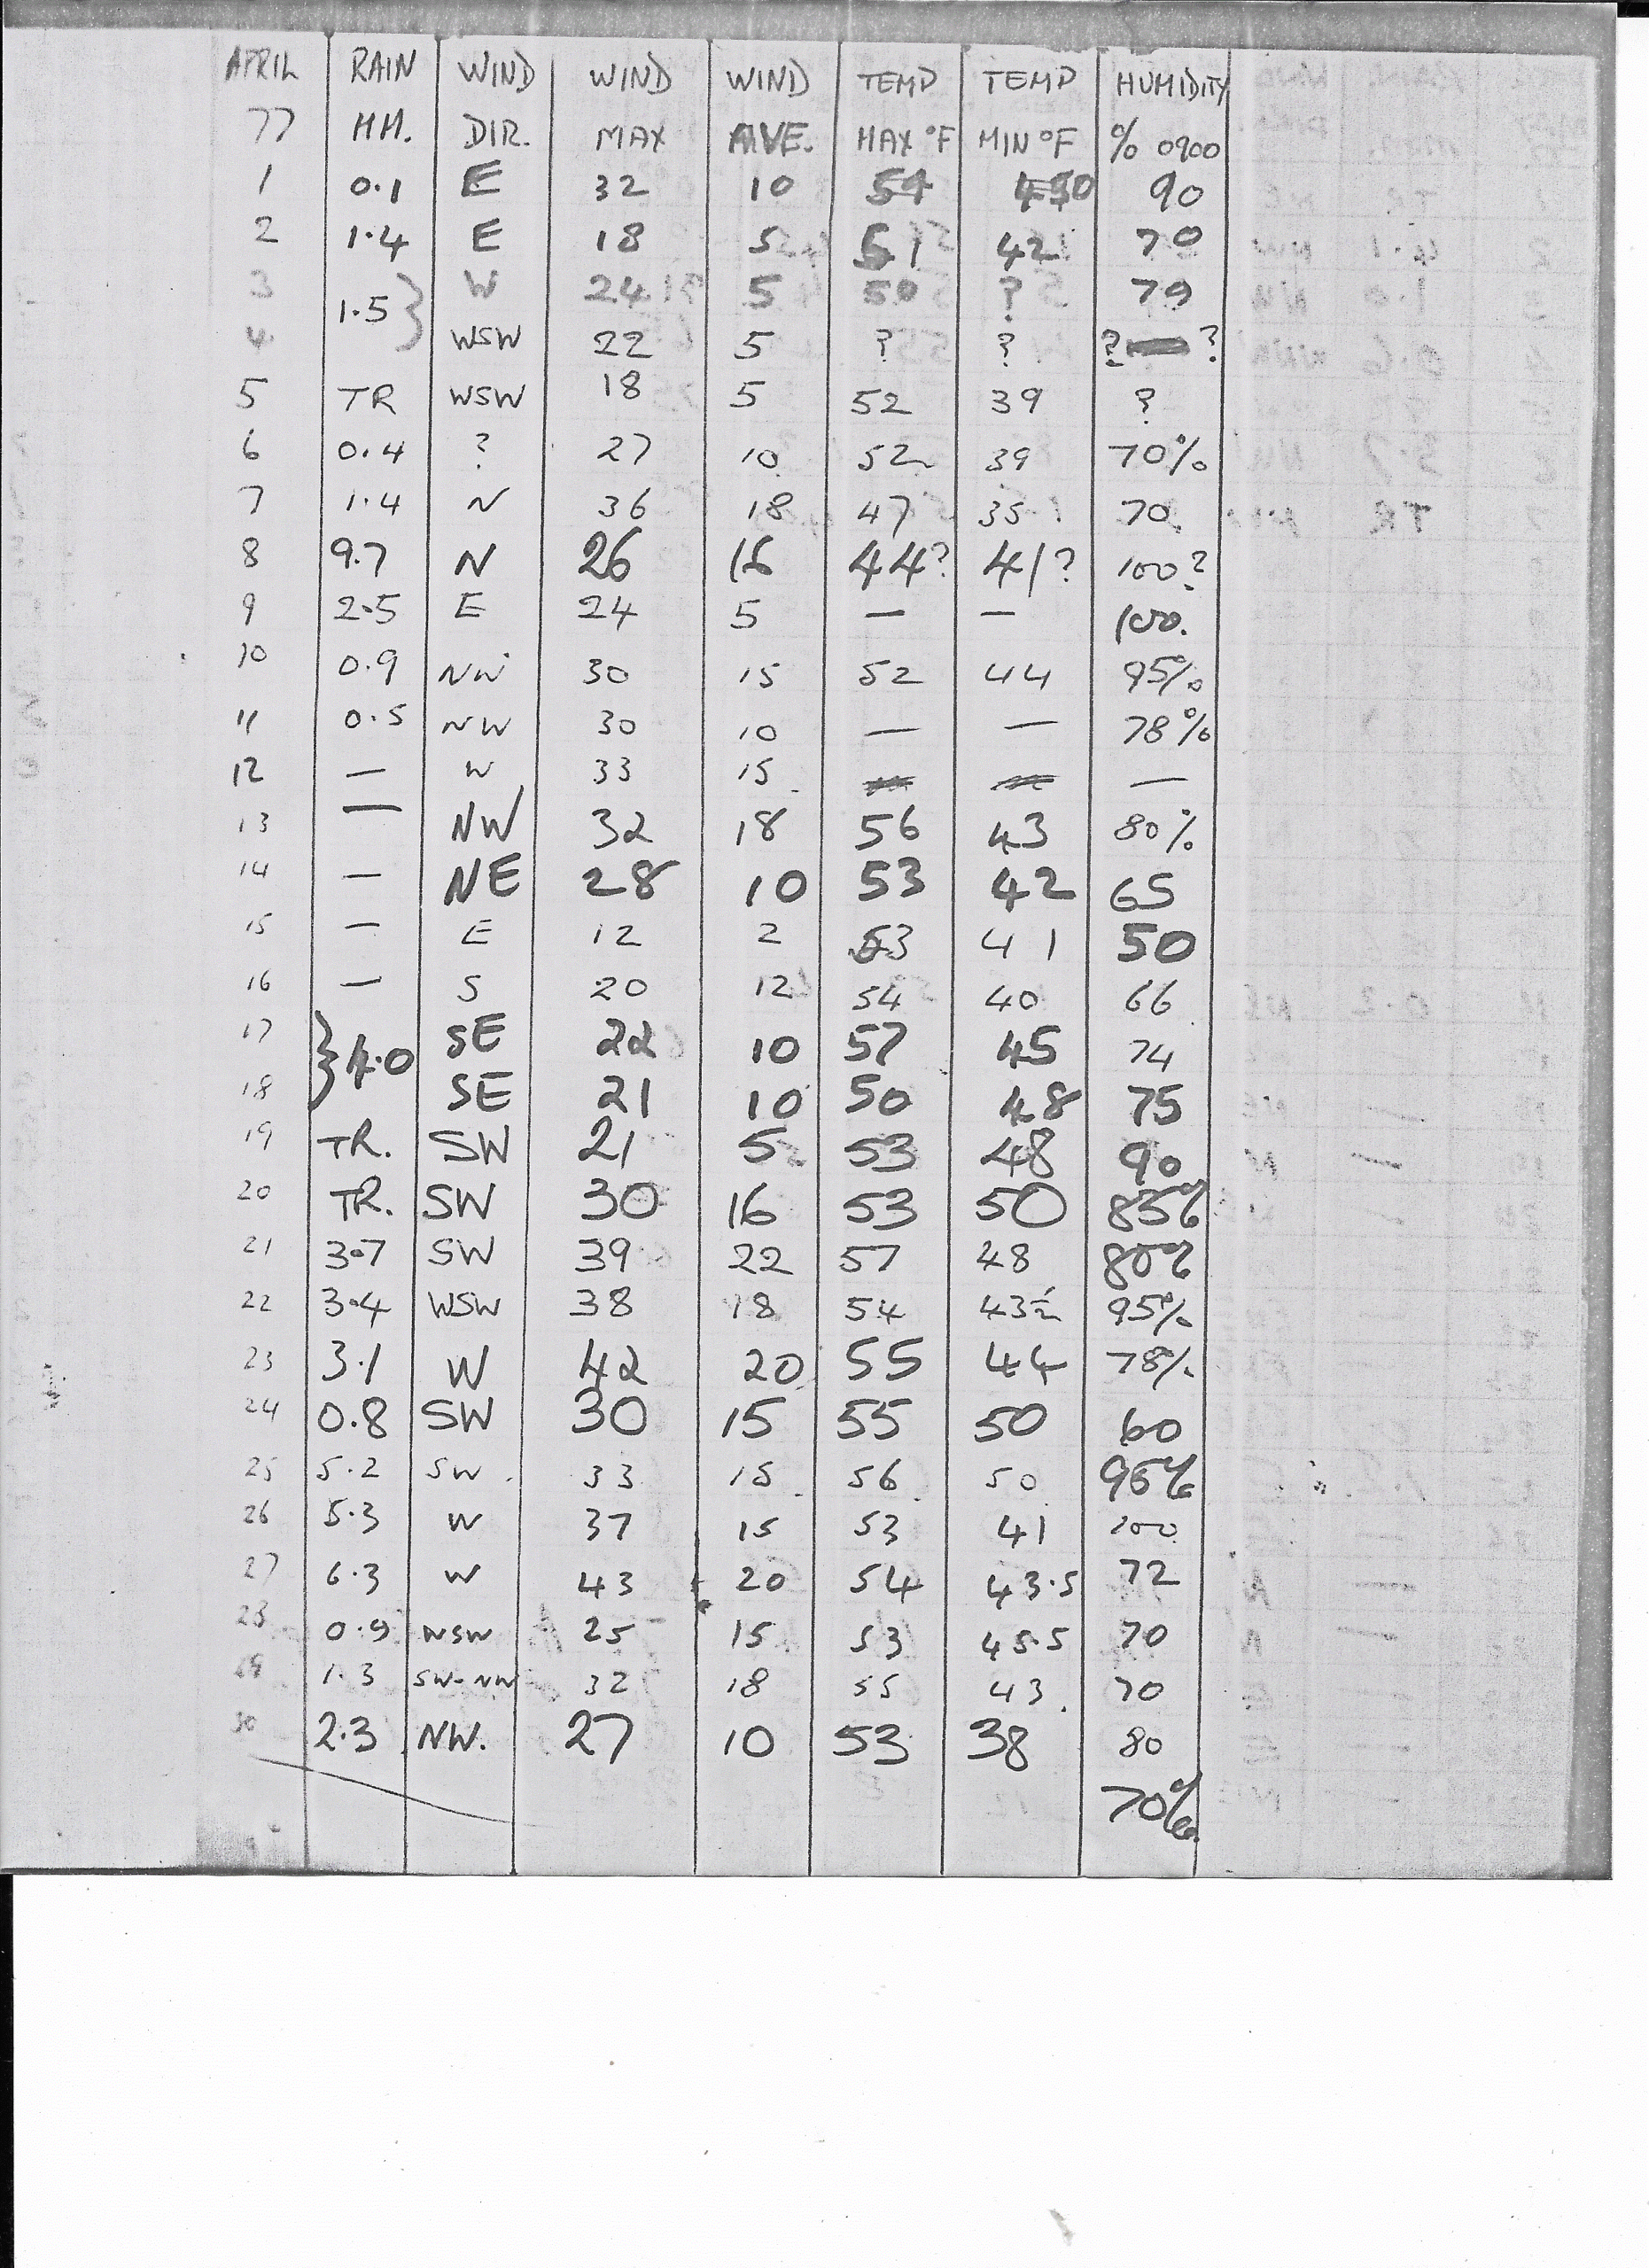 APRIL RAIN WIND WIND WIND TEMP TEMP HUMIDITY
77 MM. DIR. MAX AVE. MAX °F MIN °F % 0900
1 0.1 E 32 10 54 90
2 1.4 E 18 5 51 42 70
3 1.5 } W 24 5 50 ? 79
4 WSW 22 5 ? ? ? ?
5 TR WSW 18 5 52 39 ?
6 0.4 ? 27 10 52 39 70%
7 1.4 N 36 18 47 35 70
8 9.7 N 26 16 44? 41? 100?
9 2.5 E 24 5 — — 100.
10 0.9 NW 30 15 52 44 95%
11 0.5 NW 30 10 — — 78%
12 — W 33 15 —
13 — NW 32 18 56 43 80%
14 — NE 28 10 53 42 65
15 — E 12 2 53 41 50
16 — S 20 12 54 40 66
17 } 4.0 SE 22 10 57 45 74
18 SE 21 10 50 48 75
19 TR. SW 21 5 53 48 90
20 TR. SW 30 16 53 50 85%
21 3.7 SW 39 22 57 48 80%
22 3.4 WSW 38 18 54 43½ 95%
23 3.1 W 42 20 55 44 78%
24 0.8 SW 30 15 55 50 60
25 5.2 SW 33 15 56 50 95%
26 5.3 W 37 15 53 41 100
27 6.3 W 43 20 54 43.5 72
28 0.9 WSW 25 15 53 45.5 70
29 1.3 SW-NW 32 18 55 43 70
30 2.3 NW. 27 10 53 38 80
70%